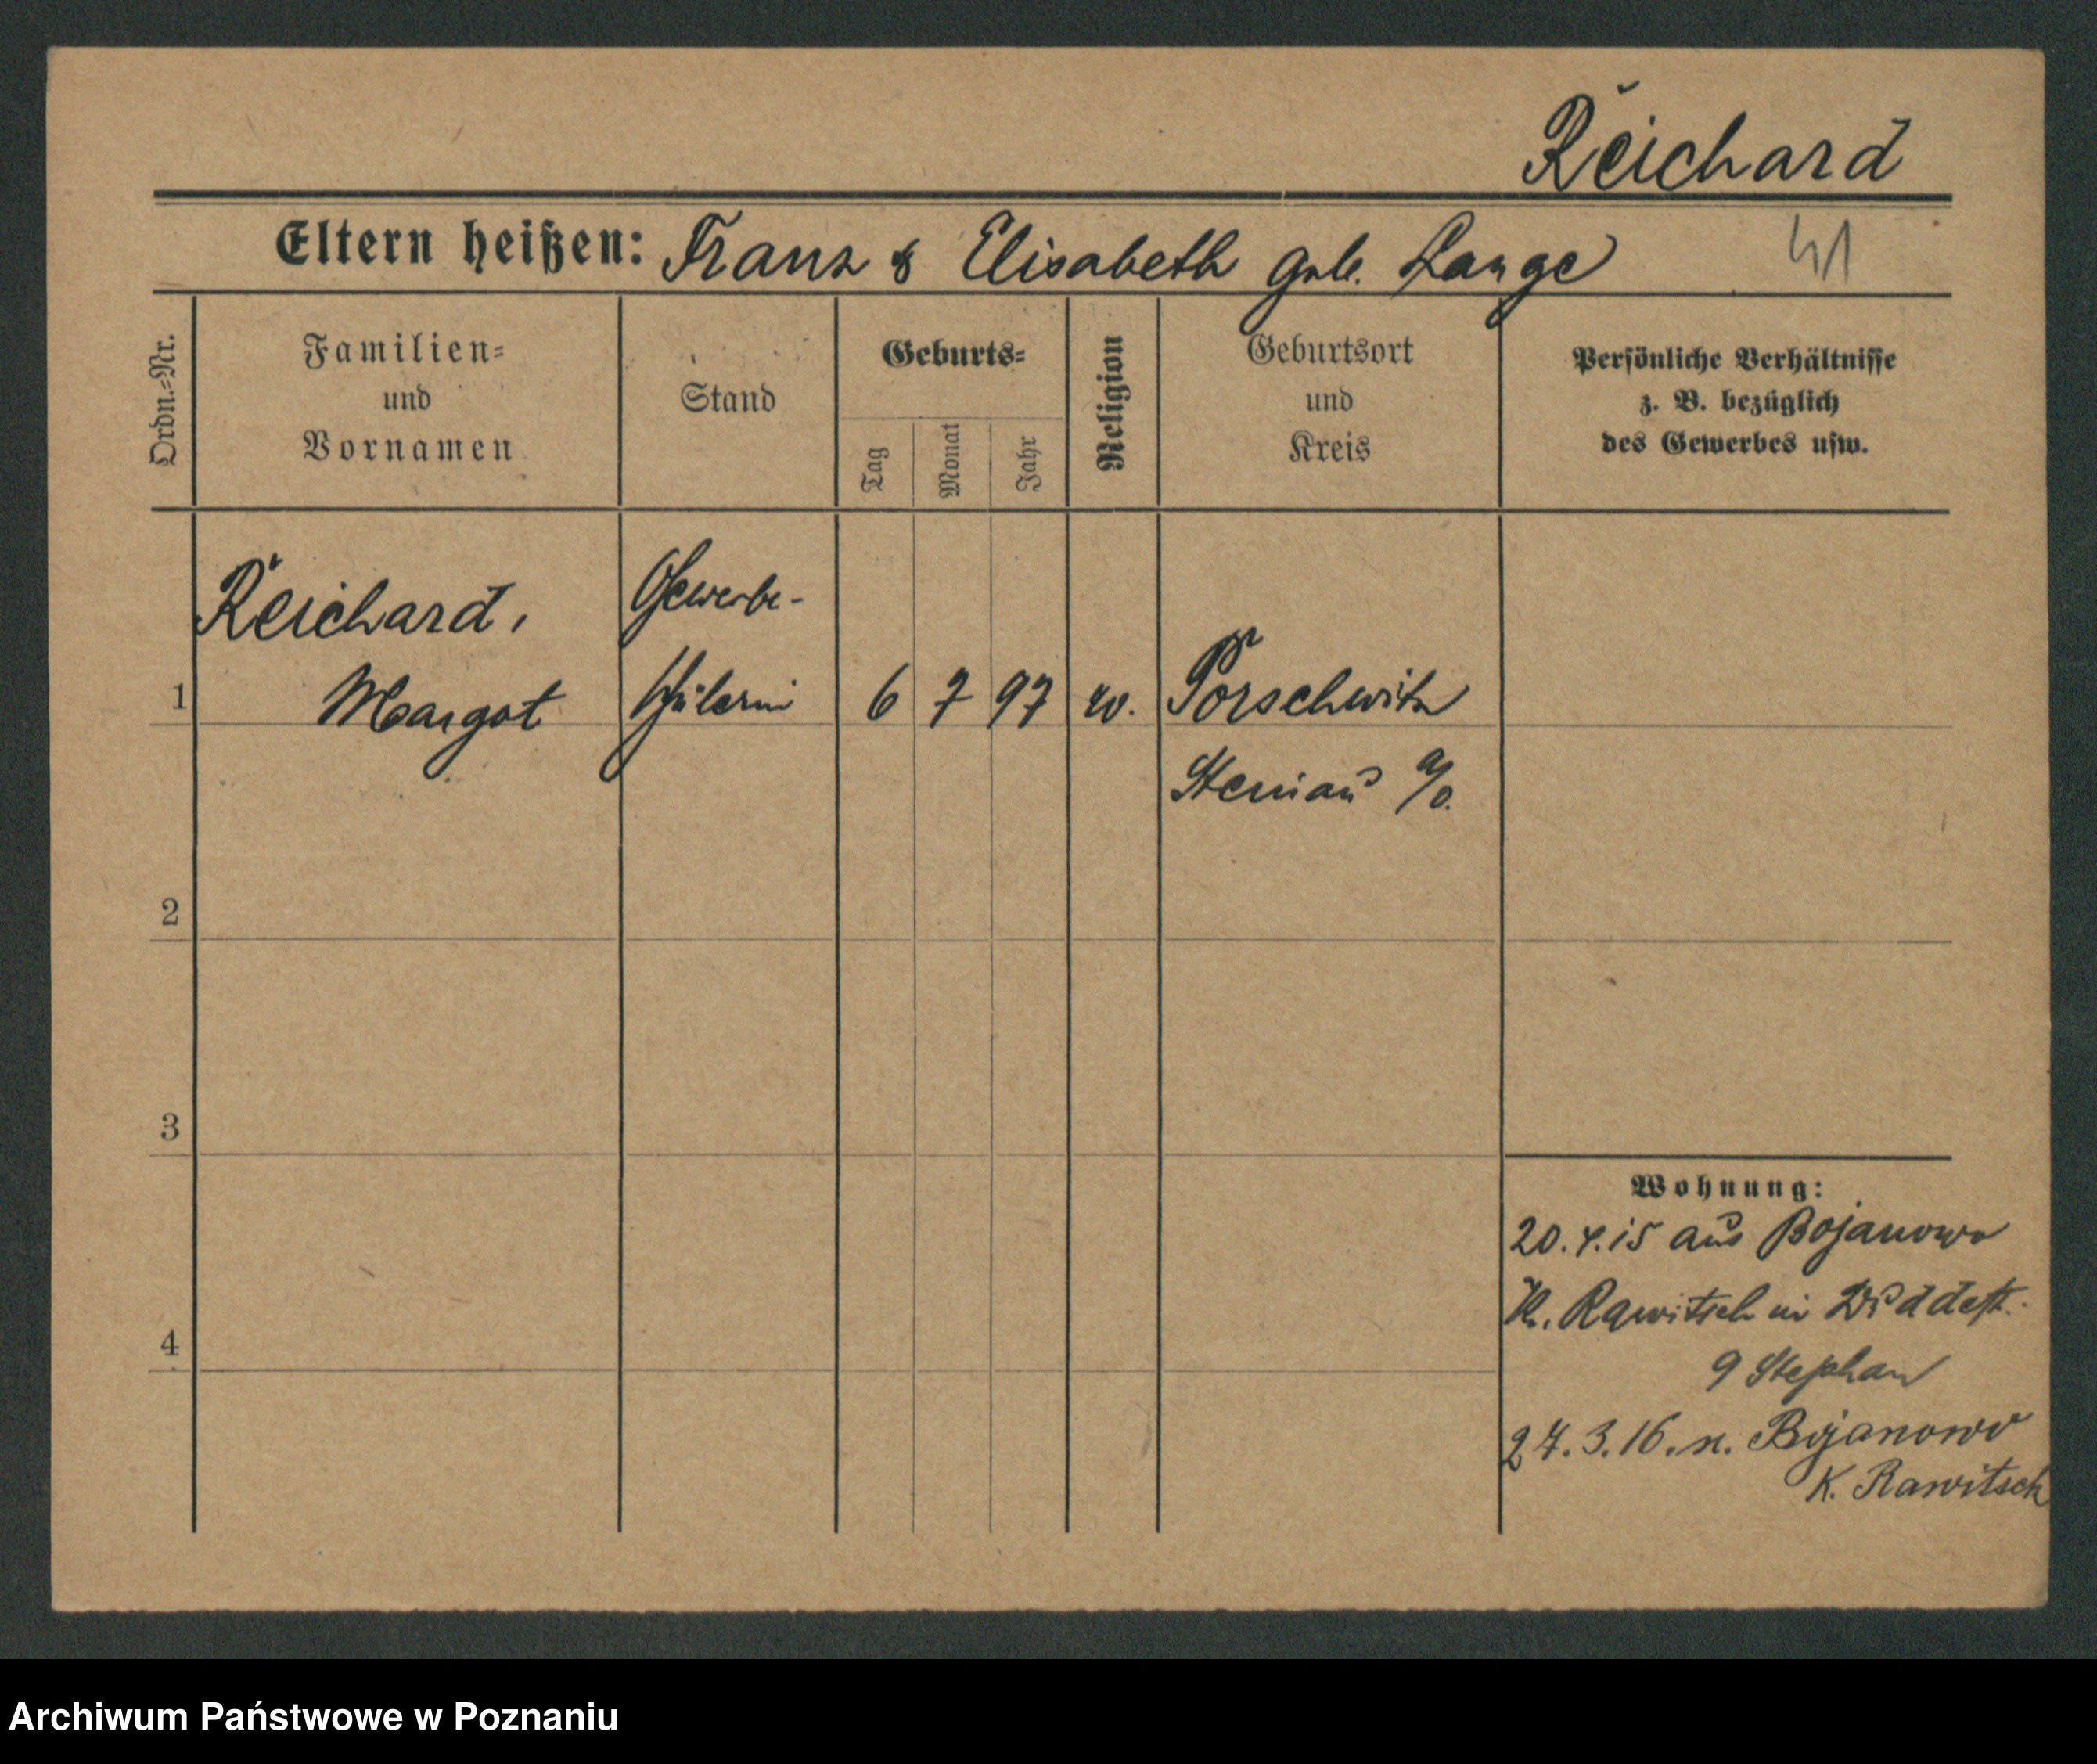 Reichard
Eltern heißen: Franz & Elisabeth geb. Lange
41
Ordn.=Nr.
Familien=
und
Vornamen
Stand
Geburts=
Tag
Monat
Jahr
Religion
Geburtsort
und
Kreis
Persönliche Verhältnisse
z. B. bezüglich
des Gewerbes usw.
1
Reichard,
Margot
Gewerbe-
schülerin
6 7 97
Porschwitz
Steinau a/O.
2
3
4
Wohnung:
20.4.15 aus Bojanowo
Kr. Rawitsch in
9 Stephan
27.3.16. n. Bojanowo
K. Rawitsch
Archiwum Państwowe w Poznaniu